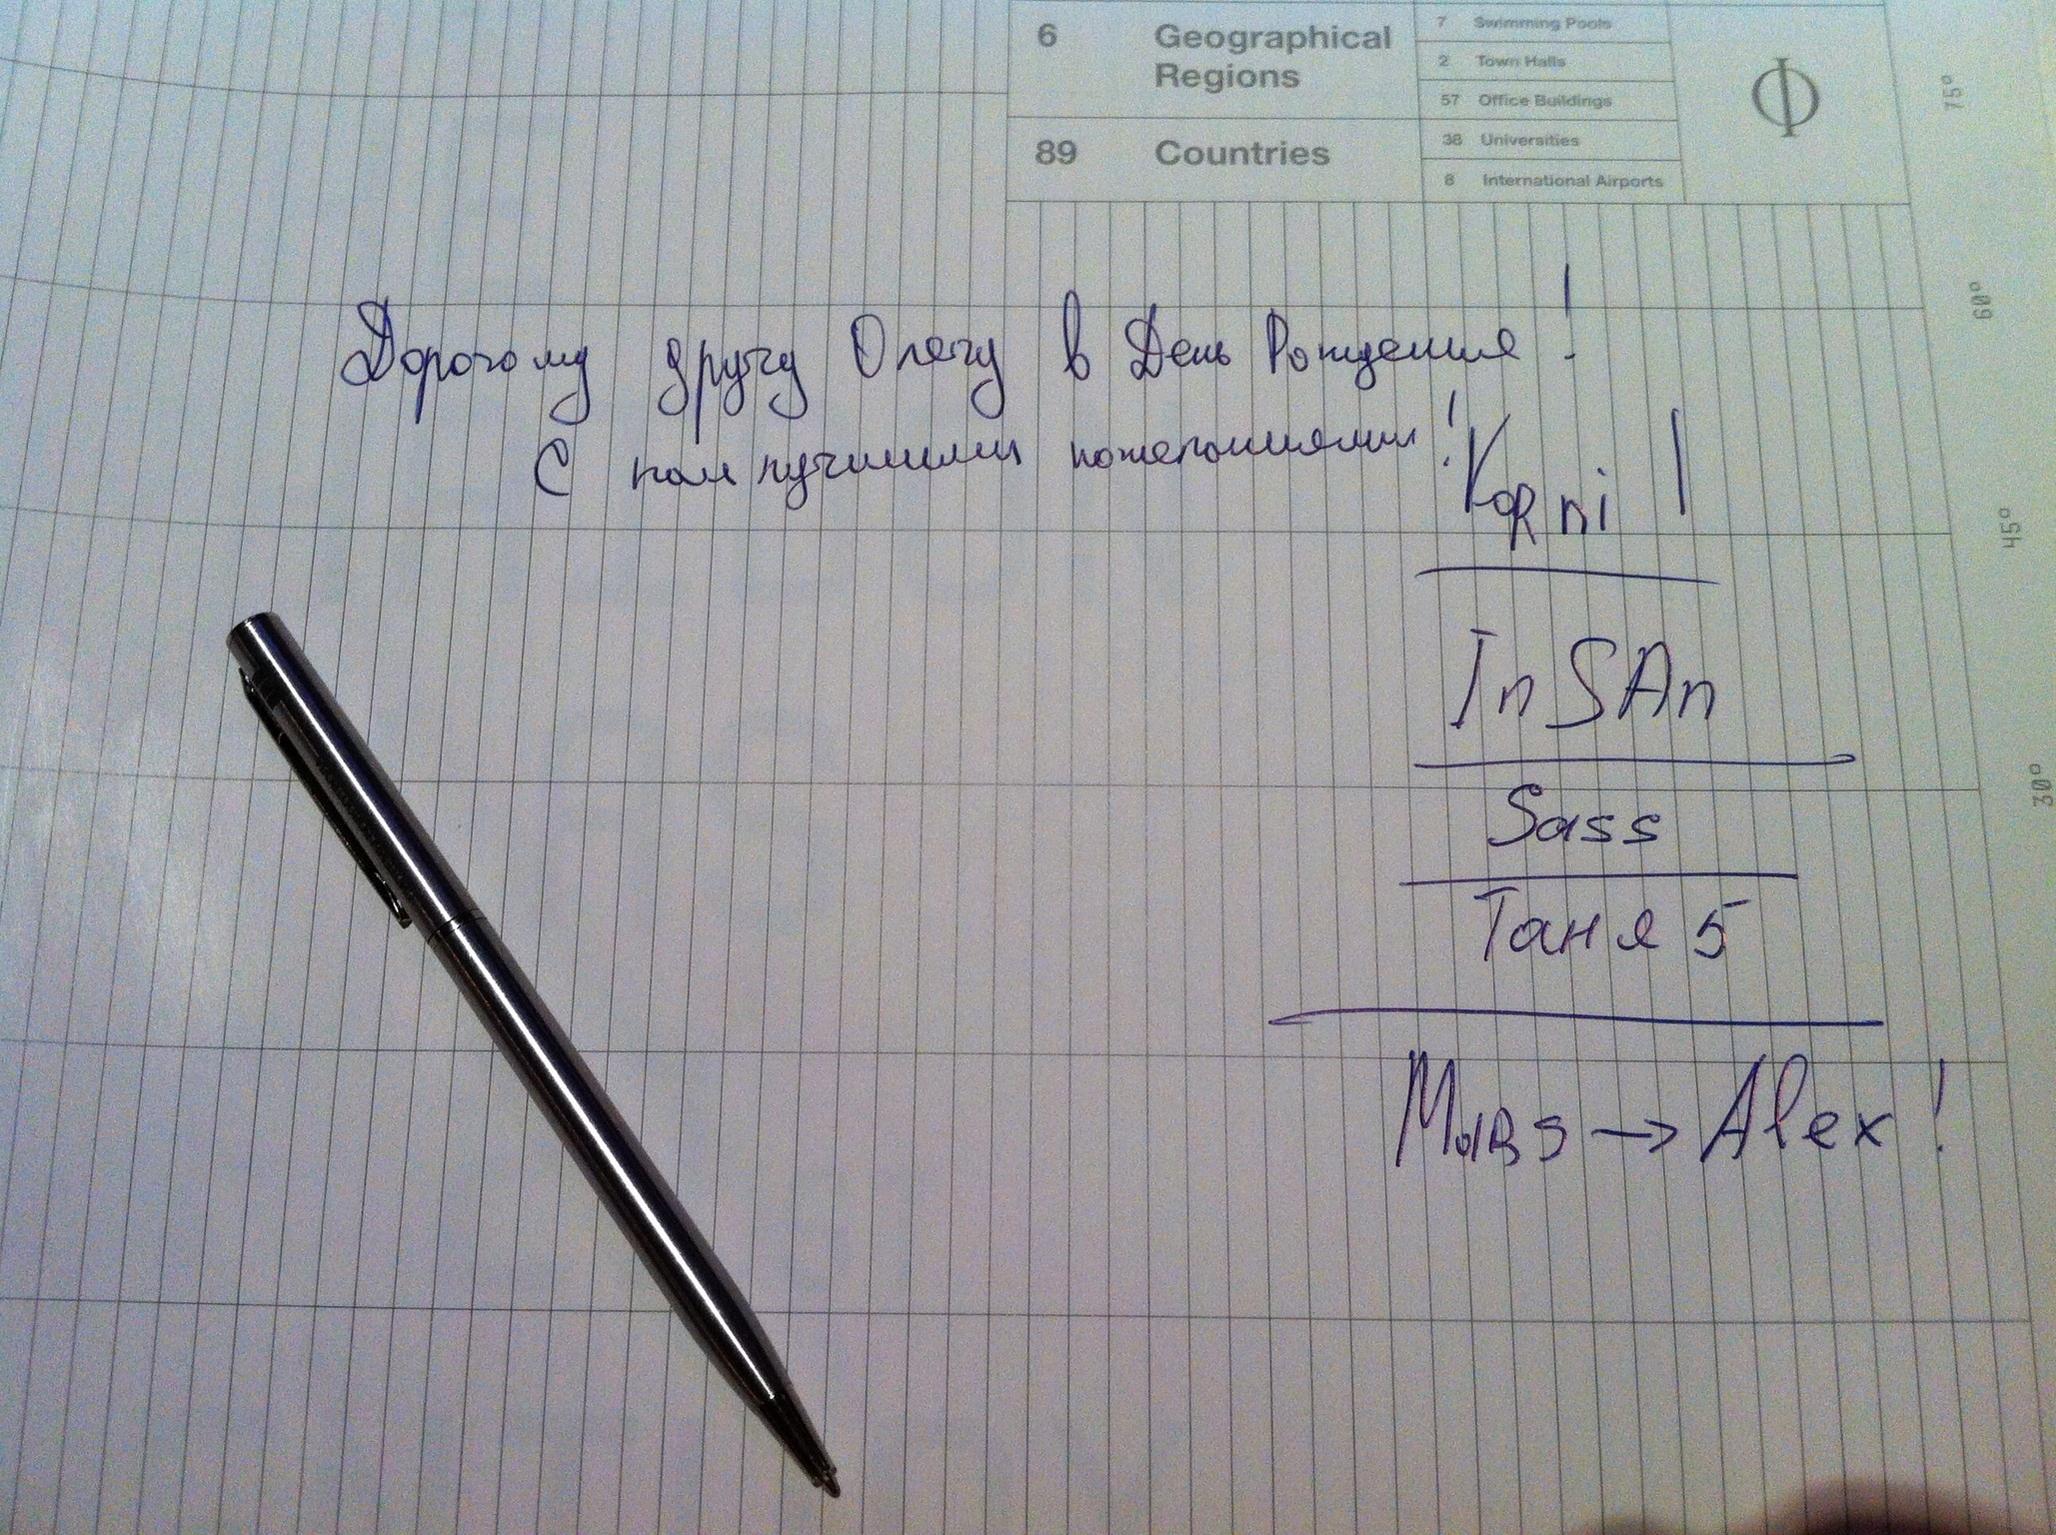 6 Geographical
Regions
89 Countries
7 Swimming Pools
2 Town Halls
57 Office Buildings
38 Universities
8 International Airports
Ф
75°
60°
45°
30°
Дорогому другу Олегу в День Рождения!
С наилучшими пожеланиями!
Korni!
InSAn
Sass
Таня 5
Mars → Alex!